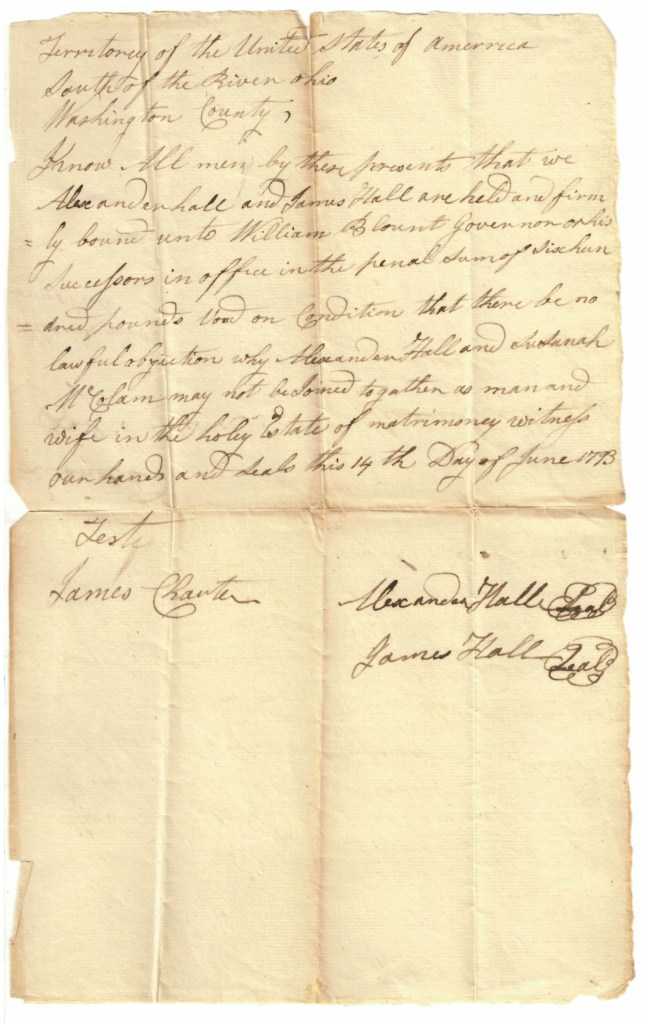 Territorey of the United States of amerrica
South of the River ohio
Washington County,
Know All men by these presents that we
Alexander hall and James Hall are held and firm
=ly bound unto William Blount Governor or his
Successors in office in the penal Sum of Six hun
=dred pounds Void on Condition that there be no
lawful objiction why Alexander Hall and Susanah
McClam may not be Joined togather as man and
wife in the holey Estate of matrimoney witness
our hands and Seals this 14th Day of June 1793
Test
James Charter
Alexander Hall Seal
James Hall Seal